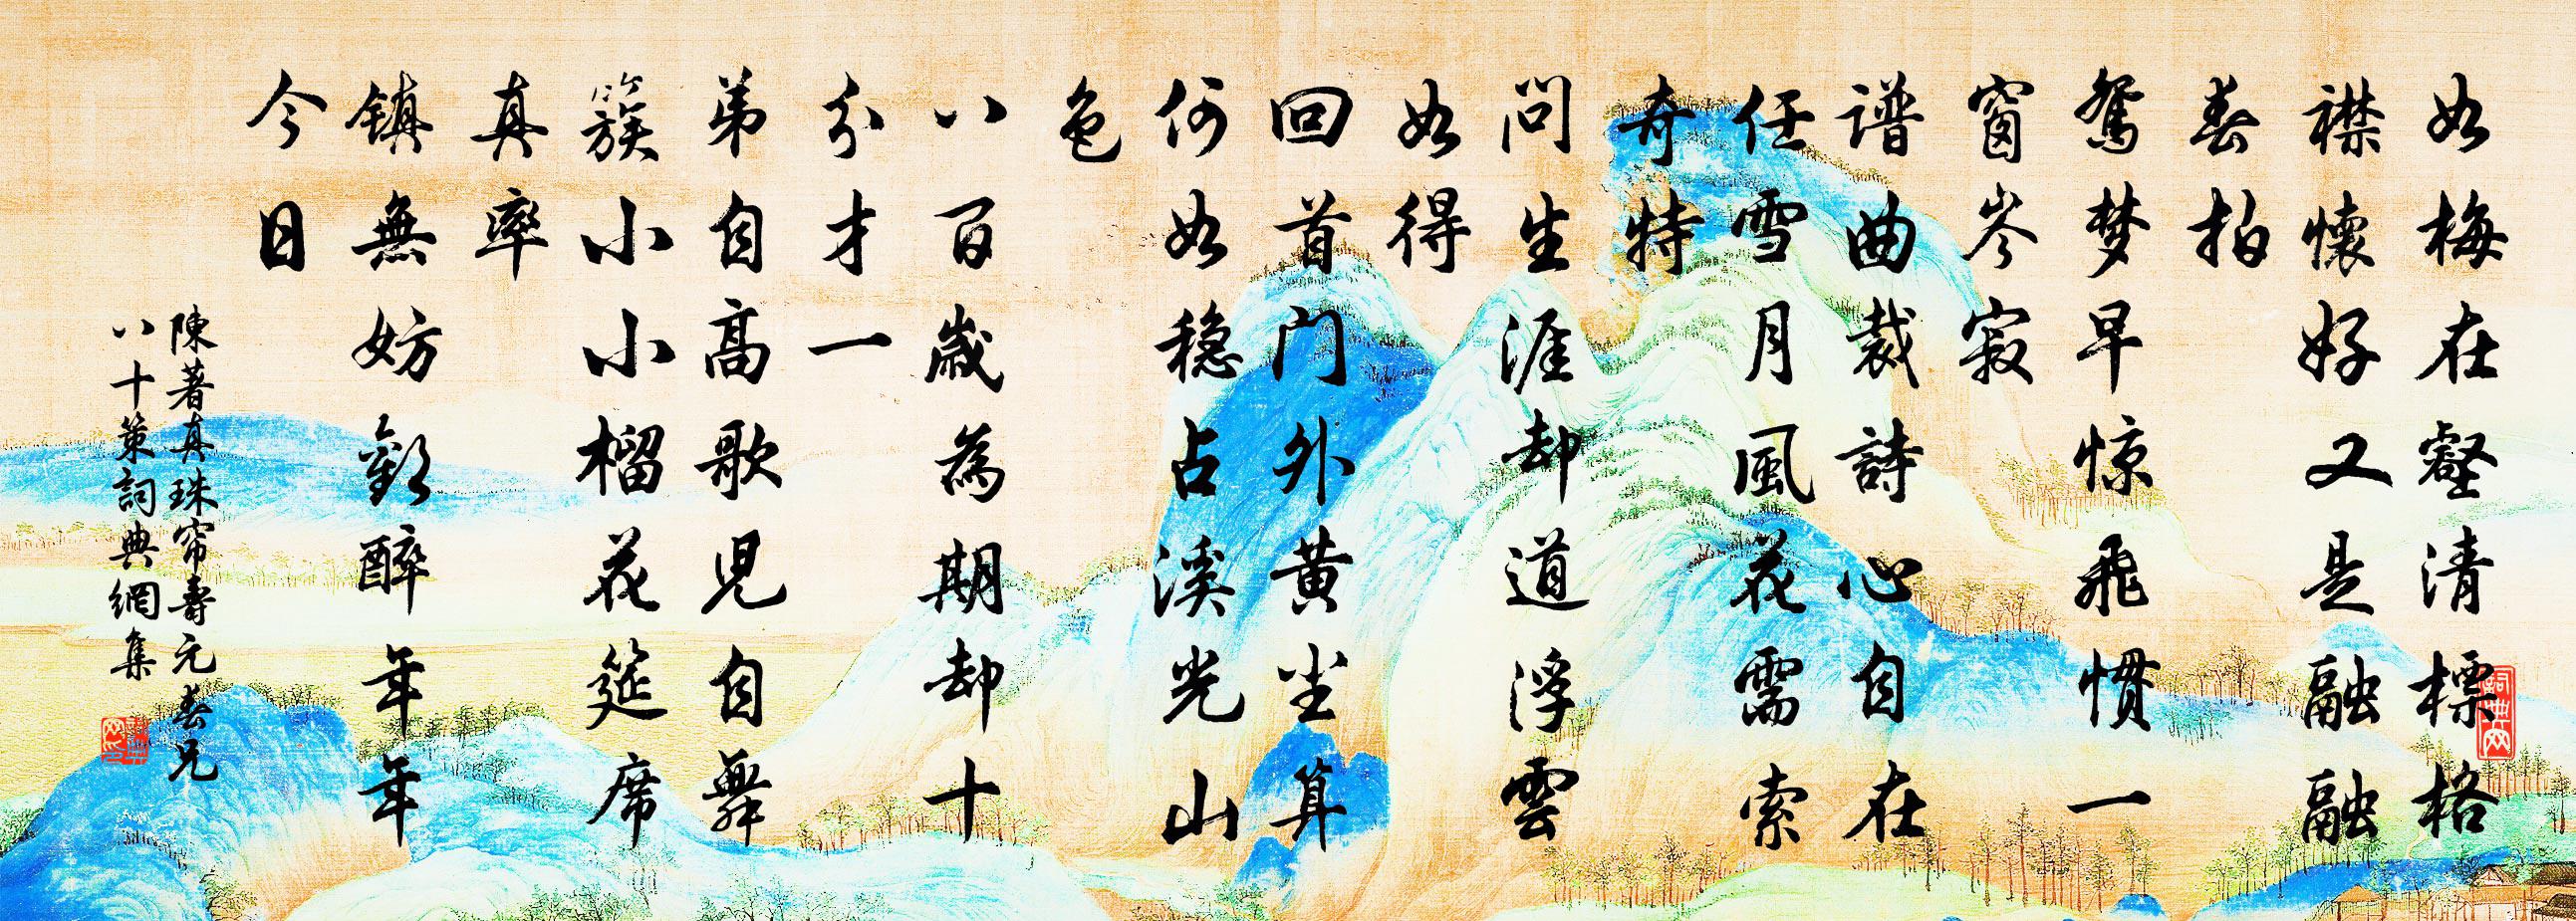 如梅在壑清標格
襟懷好又是融融
春拍
鸳梦早惊飛慣一
窗岑寂
谱曲裁詩心自在
任雪月風花需索
奇特
問生涯却道浮雲
如得
回首门外黄尘算
何如稳占溪光山
色
八百歲為期却十
分才一
弟自高歌兒自舞
簇小小榴花筵席
真率
鎮無妨歡醉年年
今日
陳著真珠帘壽元春兄
八十策詞典網集
詞典网